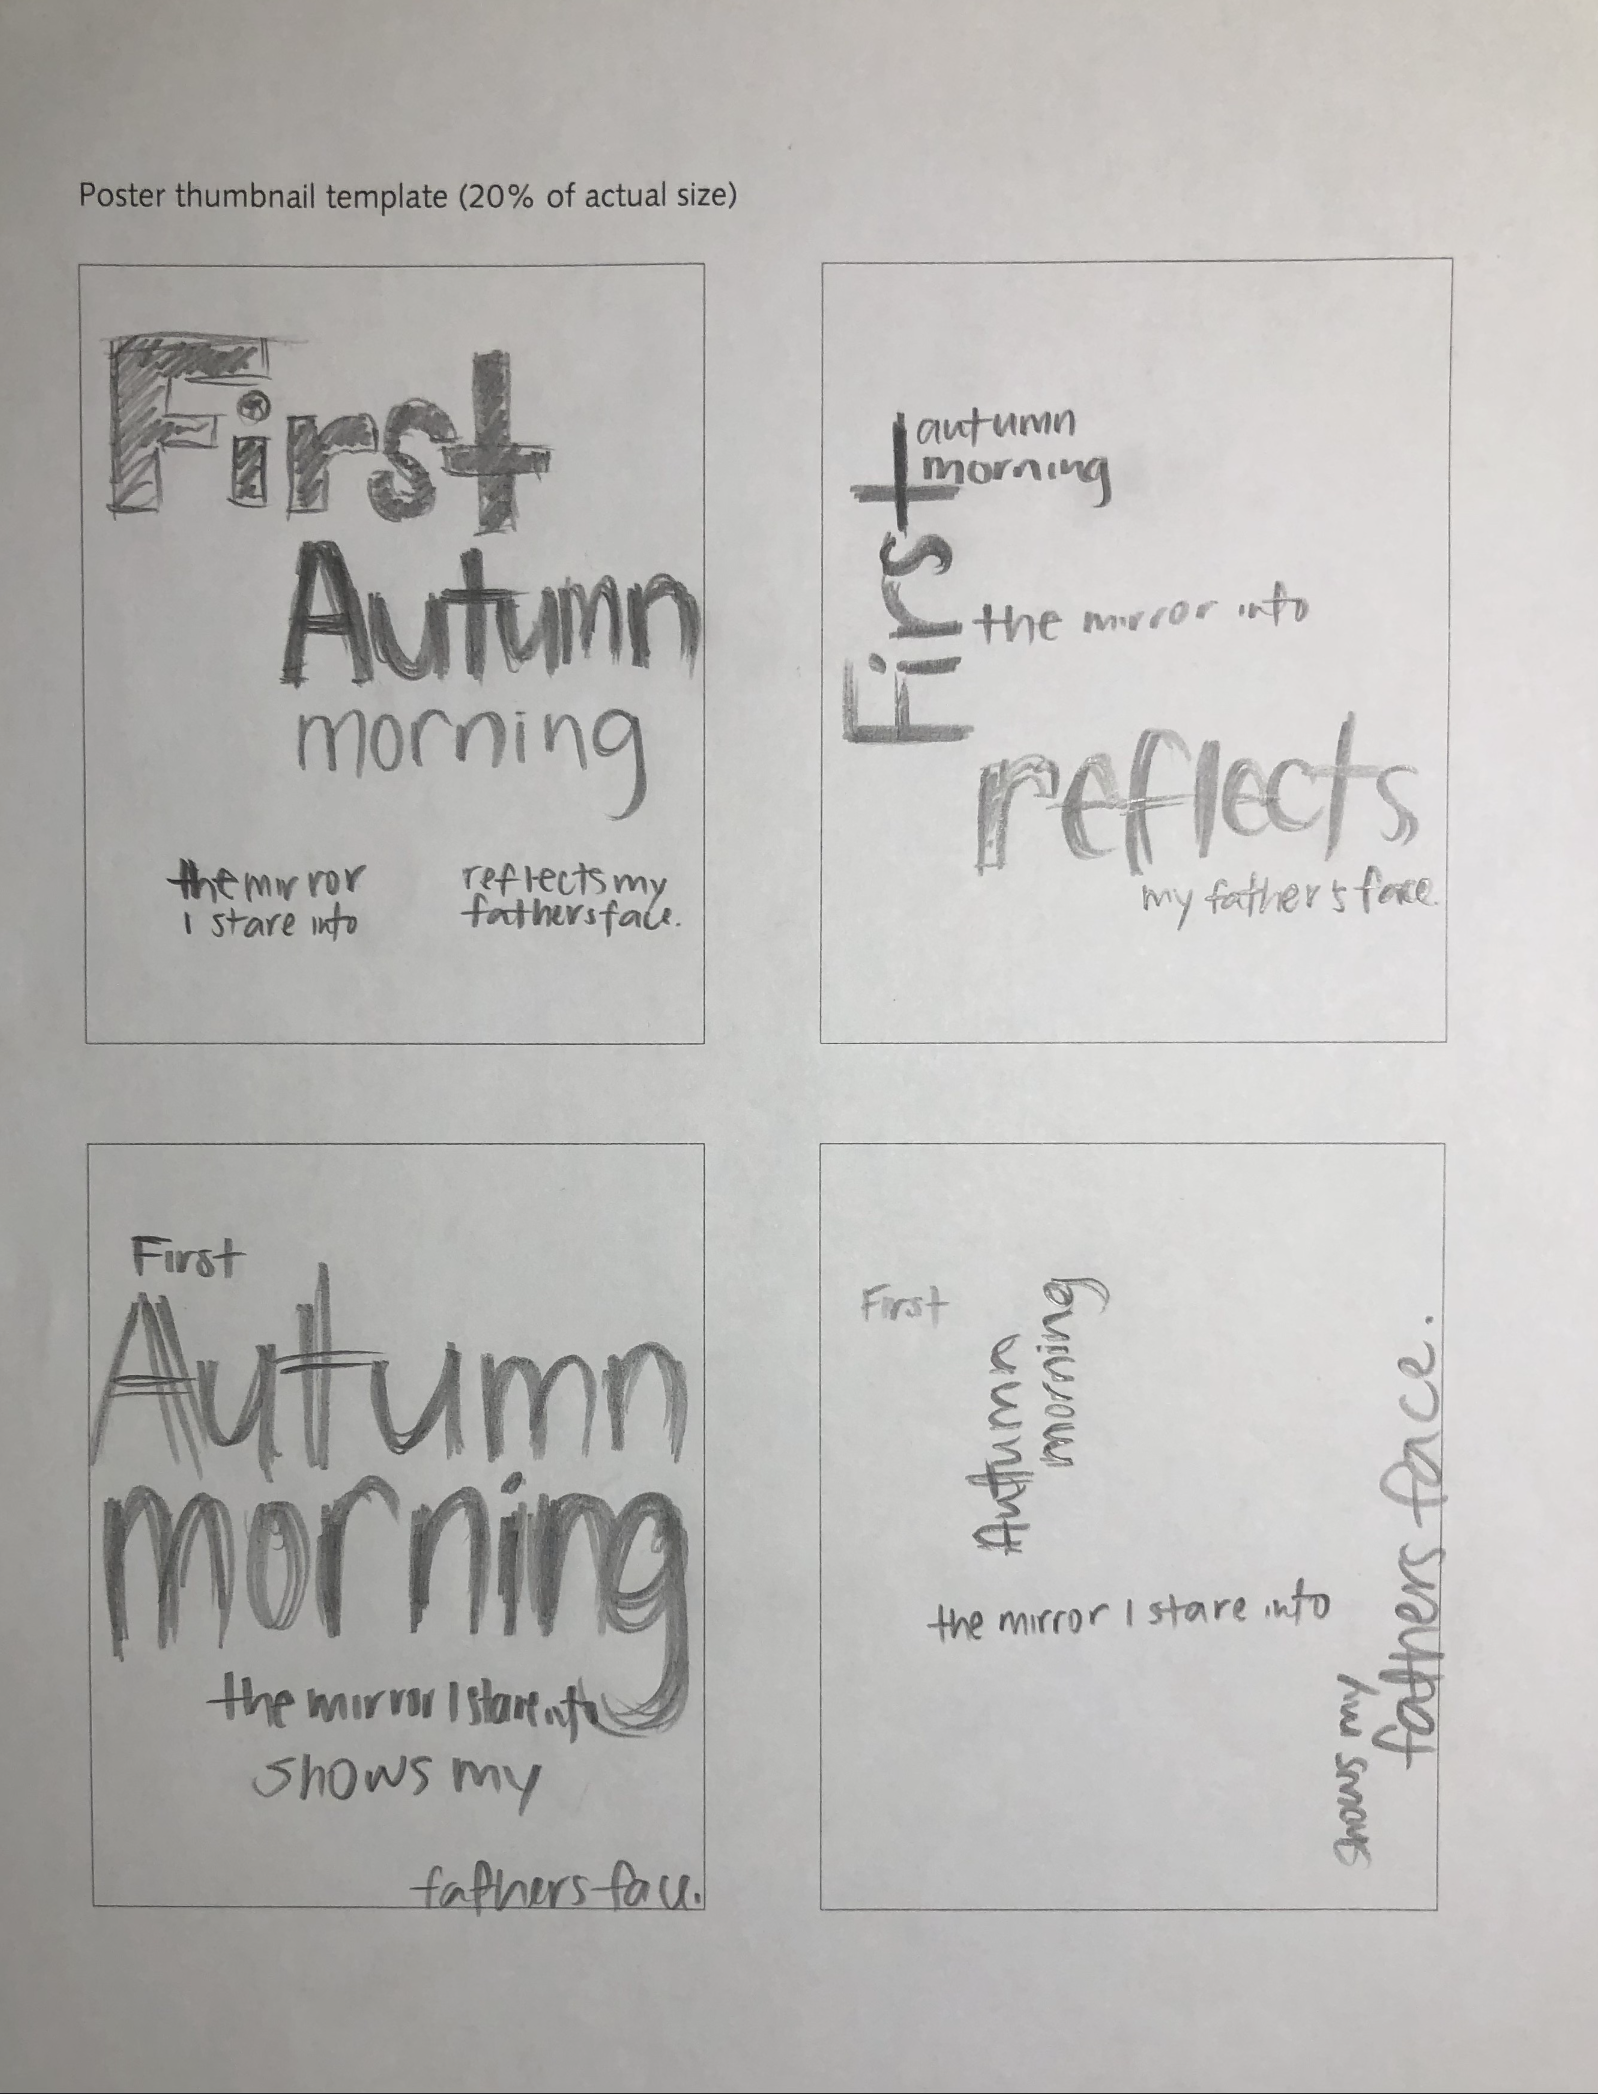 Poster thumbnail template (20% of actual size)
First
Autumn
morning
the mirror
I stare into
reflects my
fathers face.
First
autumn
morning
the mirror into
reflects
my father's face.
First
Autumn
morning
the mirror I stare into
shows my
fathers face.
First
Autumn
morning
the mirror I stare into
shows my
fathers face.